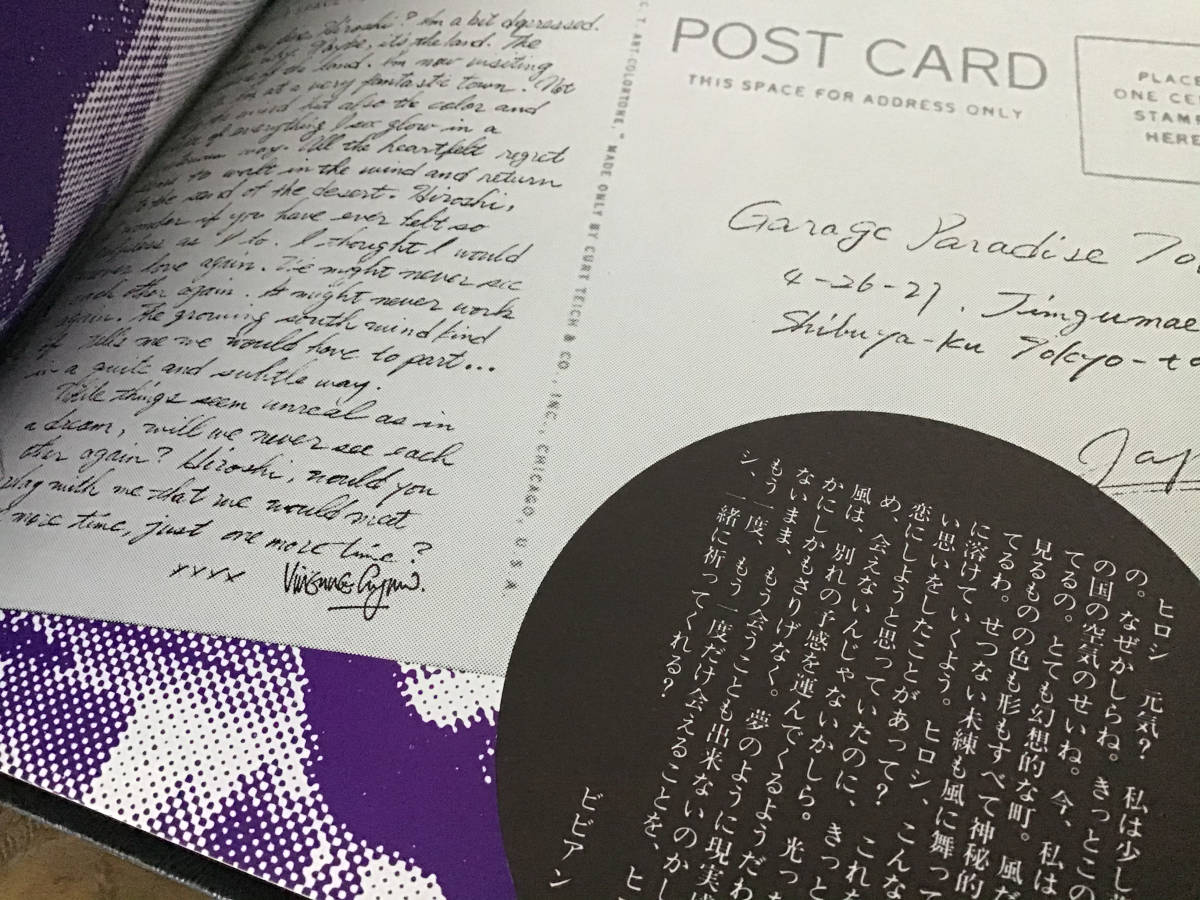 Hiroshi? I'm a bit depressed.
it's the land. The
of the land. I'm now visiting
at a very fantastic town. Not
wind but also the color and
of everything I see glow in a
way. All the heartfelt regret
to melt in the wind and return
to the sand of the desert. Hiroshi,
wonder if you have ever felt so
as I do. I thought I would
never love again. We might never see
each other again. It might never work
again. The growing south wind kind
of tells me we would have to part...
in a quite and subtle way.
While things seem unreal as in
a dream, will we never see each
other again? Hiroshi, would you
play with me that we would meet
more time, just one more time?
xxxx
C.T. ART-COLORTONE," MADE ONLY BY CURT TEICH & CO., INC., CHICAGO, U.S.A.
POST CARD
THIS SPACE FOR ADDRESS ONLY
PLACE
ONE CE
STAMP
HERE
Garage Paradise To
4-26-27. Jimgumae
Shibuya-Ku Tokyo-to
Jap
ヒロシ 元気? 私は少し
の。なぜかしらね。きっとこの
の国の空気のせいね。今、私は
てるの。とても幻想的な町。風だ
見るものの色も形もすべて神秘的
てるわ。せつない未練も風に舞って
に溶けていくよう。ヒロシ、こんな
い思いをしたことがあって? これを
恋にしようと思っていたのに、きっと
め、会えないんじゃないかしら。光った
風は、別れの予感を運んでくるようだわ
かにしかもさりげなく。夢のように現実
ないまま、もう会うことも出来ないのかし
もう一度、もう一度だけ会えることを、ヒ
シ、一緒に祈ってくれる?
ビビアン